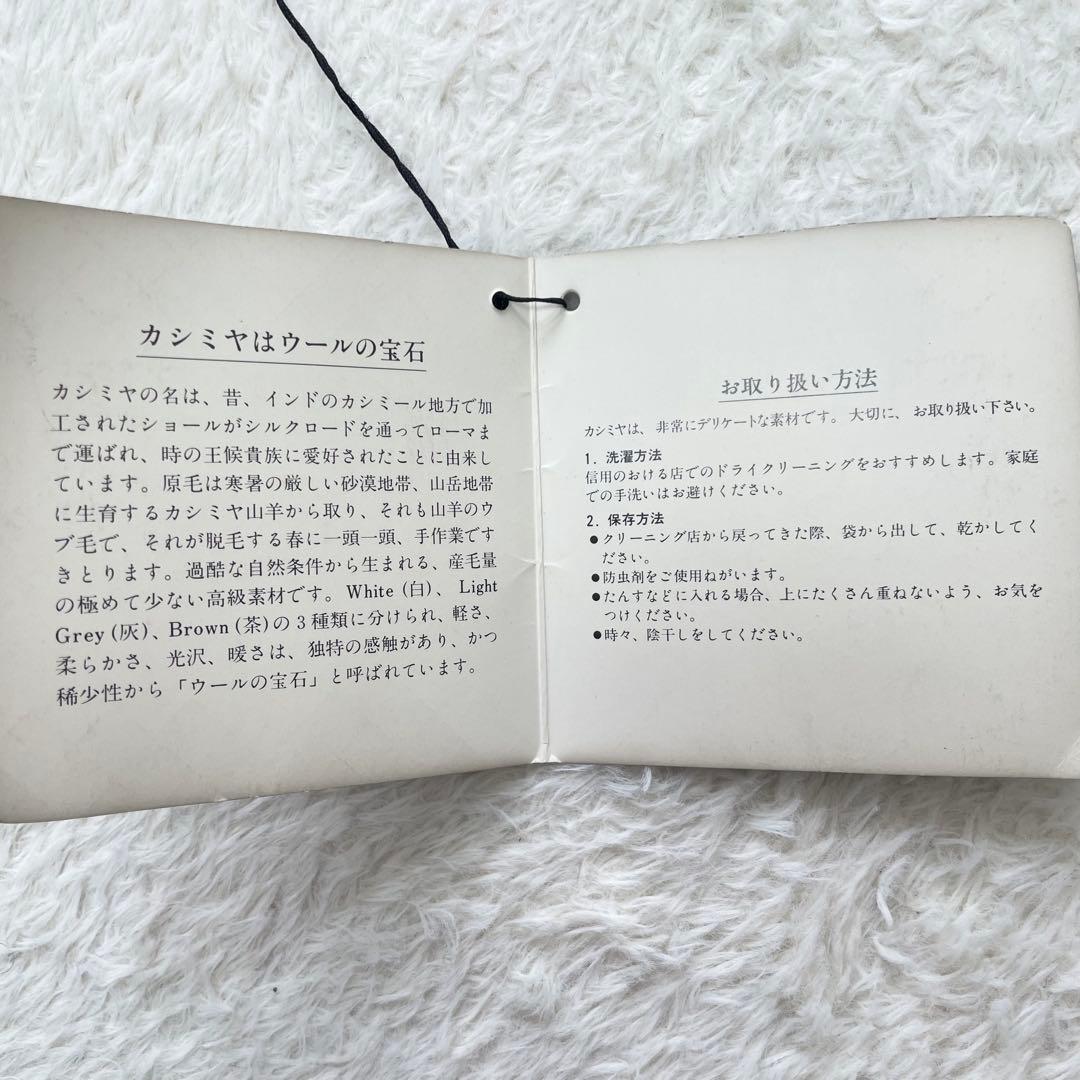 カシミヤはウールの宝石
カシミヤの名は、昔、インドのカシミール地方で加
工されたショールがシルクロードを通ってローマま
で運ばれ、時の王候貴族に愛好されたことに由来し
ています。原毛は寒暑の厳しい砂漠地帯、山岳地帯
に生育するカシミヤ山羊から取り、それも山羊のウ
ブ毛で、それが脱毛する春に一頭一頭、手作業です
きとります。過酷な自然条件から生まれる、産毛量
の極めて少ない高級素材です。White (白)、Light
Grey (灰)、Brown (茶)の3種類に分けられ、軽さ、
柔らかさ、光沢、暖さは、独特の感触があり、かつ
稀少性から「ウールの宝石」と呼ばれています。
お取り扱い方法
カシミヤは、非常にデリケートな素材です。大切に、お取り扱い下さい。
1. 洗濯方法
信用のおける店でのドライクリーニングをおすすめします。家庭
での手洗いはお避けください。
2. 保存方法
●クリーニング店から戻ってきた際、袋から出して、乾かしてく
ださい。
●防虫剤をご使用ねがいます。
●たんすなどに入れる場合、上にたくさん重ねないよう、お気を
つけください。
●時々、陰干しをしてください。